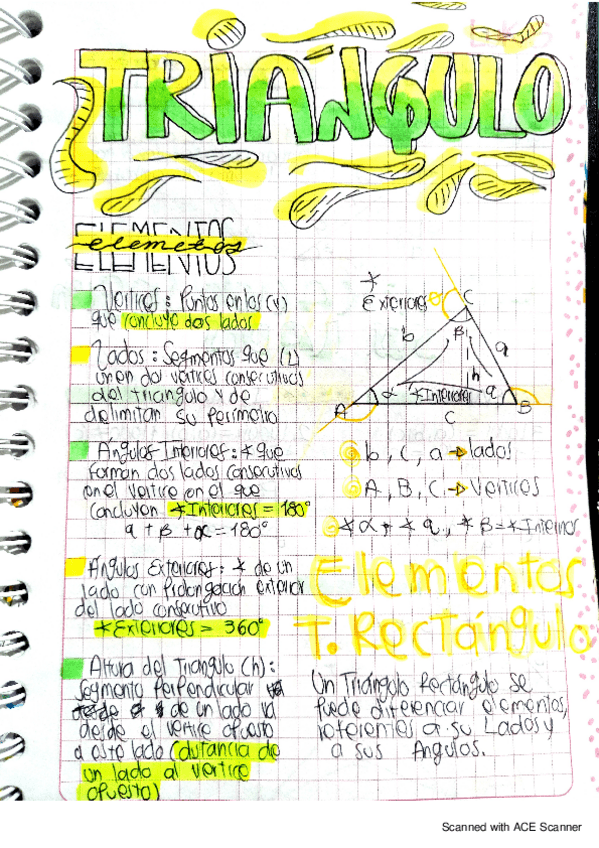 TRIÁNGULO
ELEMENTOS
elementos
Vertices: Puntos en los (v)
que concluye dos lados
Lados: Segmentos que (L)
unen dos vertices consecutivos
del triangulo y de
delimitan su perimetro
Ángulos Interiores: ∢ que
forman dos lados consecutivos
en el vertice en el que
concluyen ∢Interiores = 180°
q + β + α = 180°
Ángulos Exteriores: ∢ de un
lado con prolongación exterior
del lado consecutivo
∢Exteriores = 360°
Altura del Triangulo (h):
Segmento perpendicular
de un lado
desde el vertice opuesto
a este lado (distancia de
un lado al vertice
opuesto)
∢
Exteriores
C
b
B
a
h
α
∢Interiores
q
A
B
C
b, C, a → lados
A, B, C → Vertices
∢α, ∢q, ∢B = ∢Interinos
Elementos
T. Rectángulo
Un Triángulo Rectángulo se
puede diferenciar elementos,
referentes a su Lados y
a sus Angulos.
Scanned with ACE Scanner